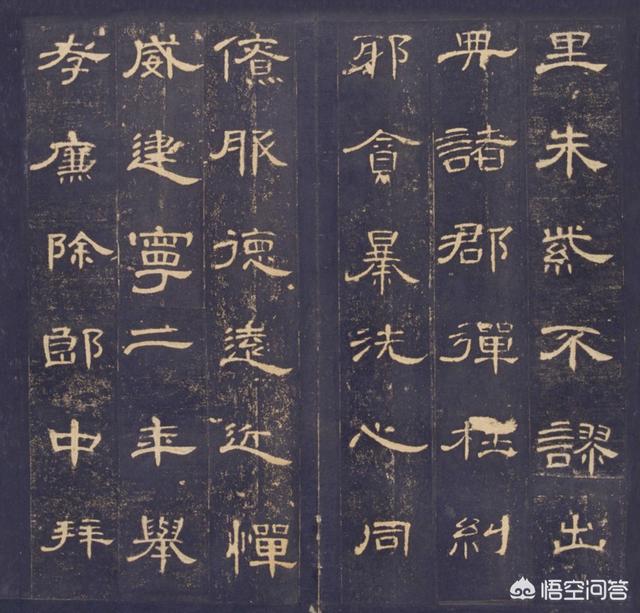 里朱紫不謬出
典諸郡彈枉糾
邪貪暴洗心同
僚服德遠近憚
威建寧二年舉
孝廉除郎中拜
悟空问答